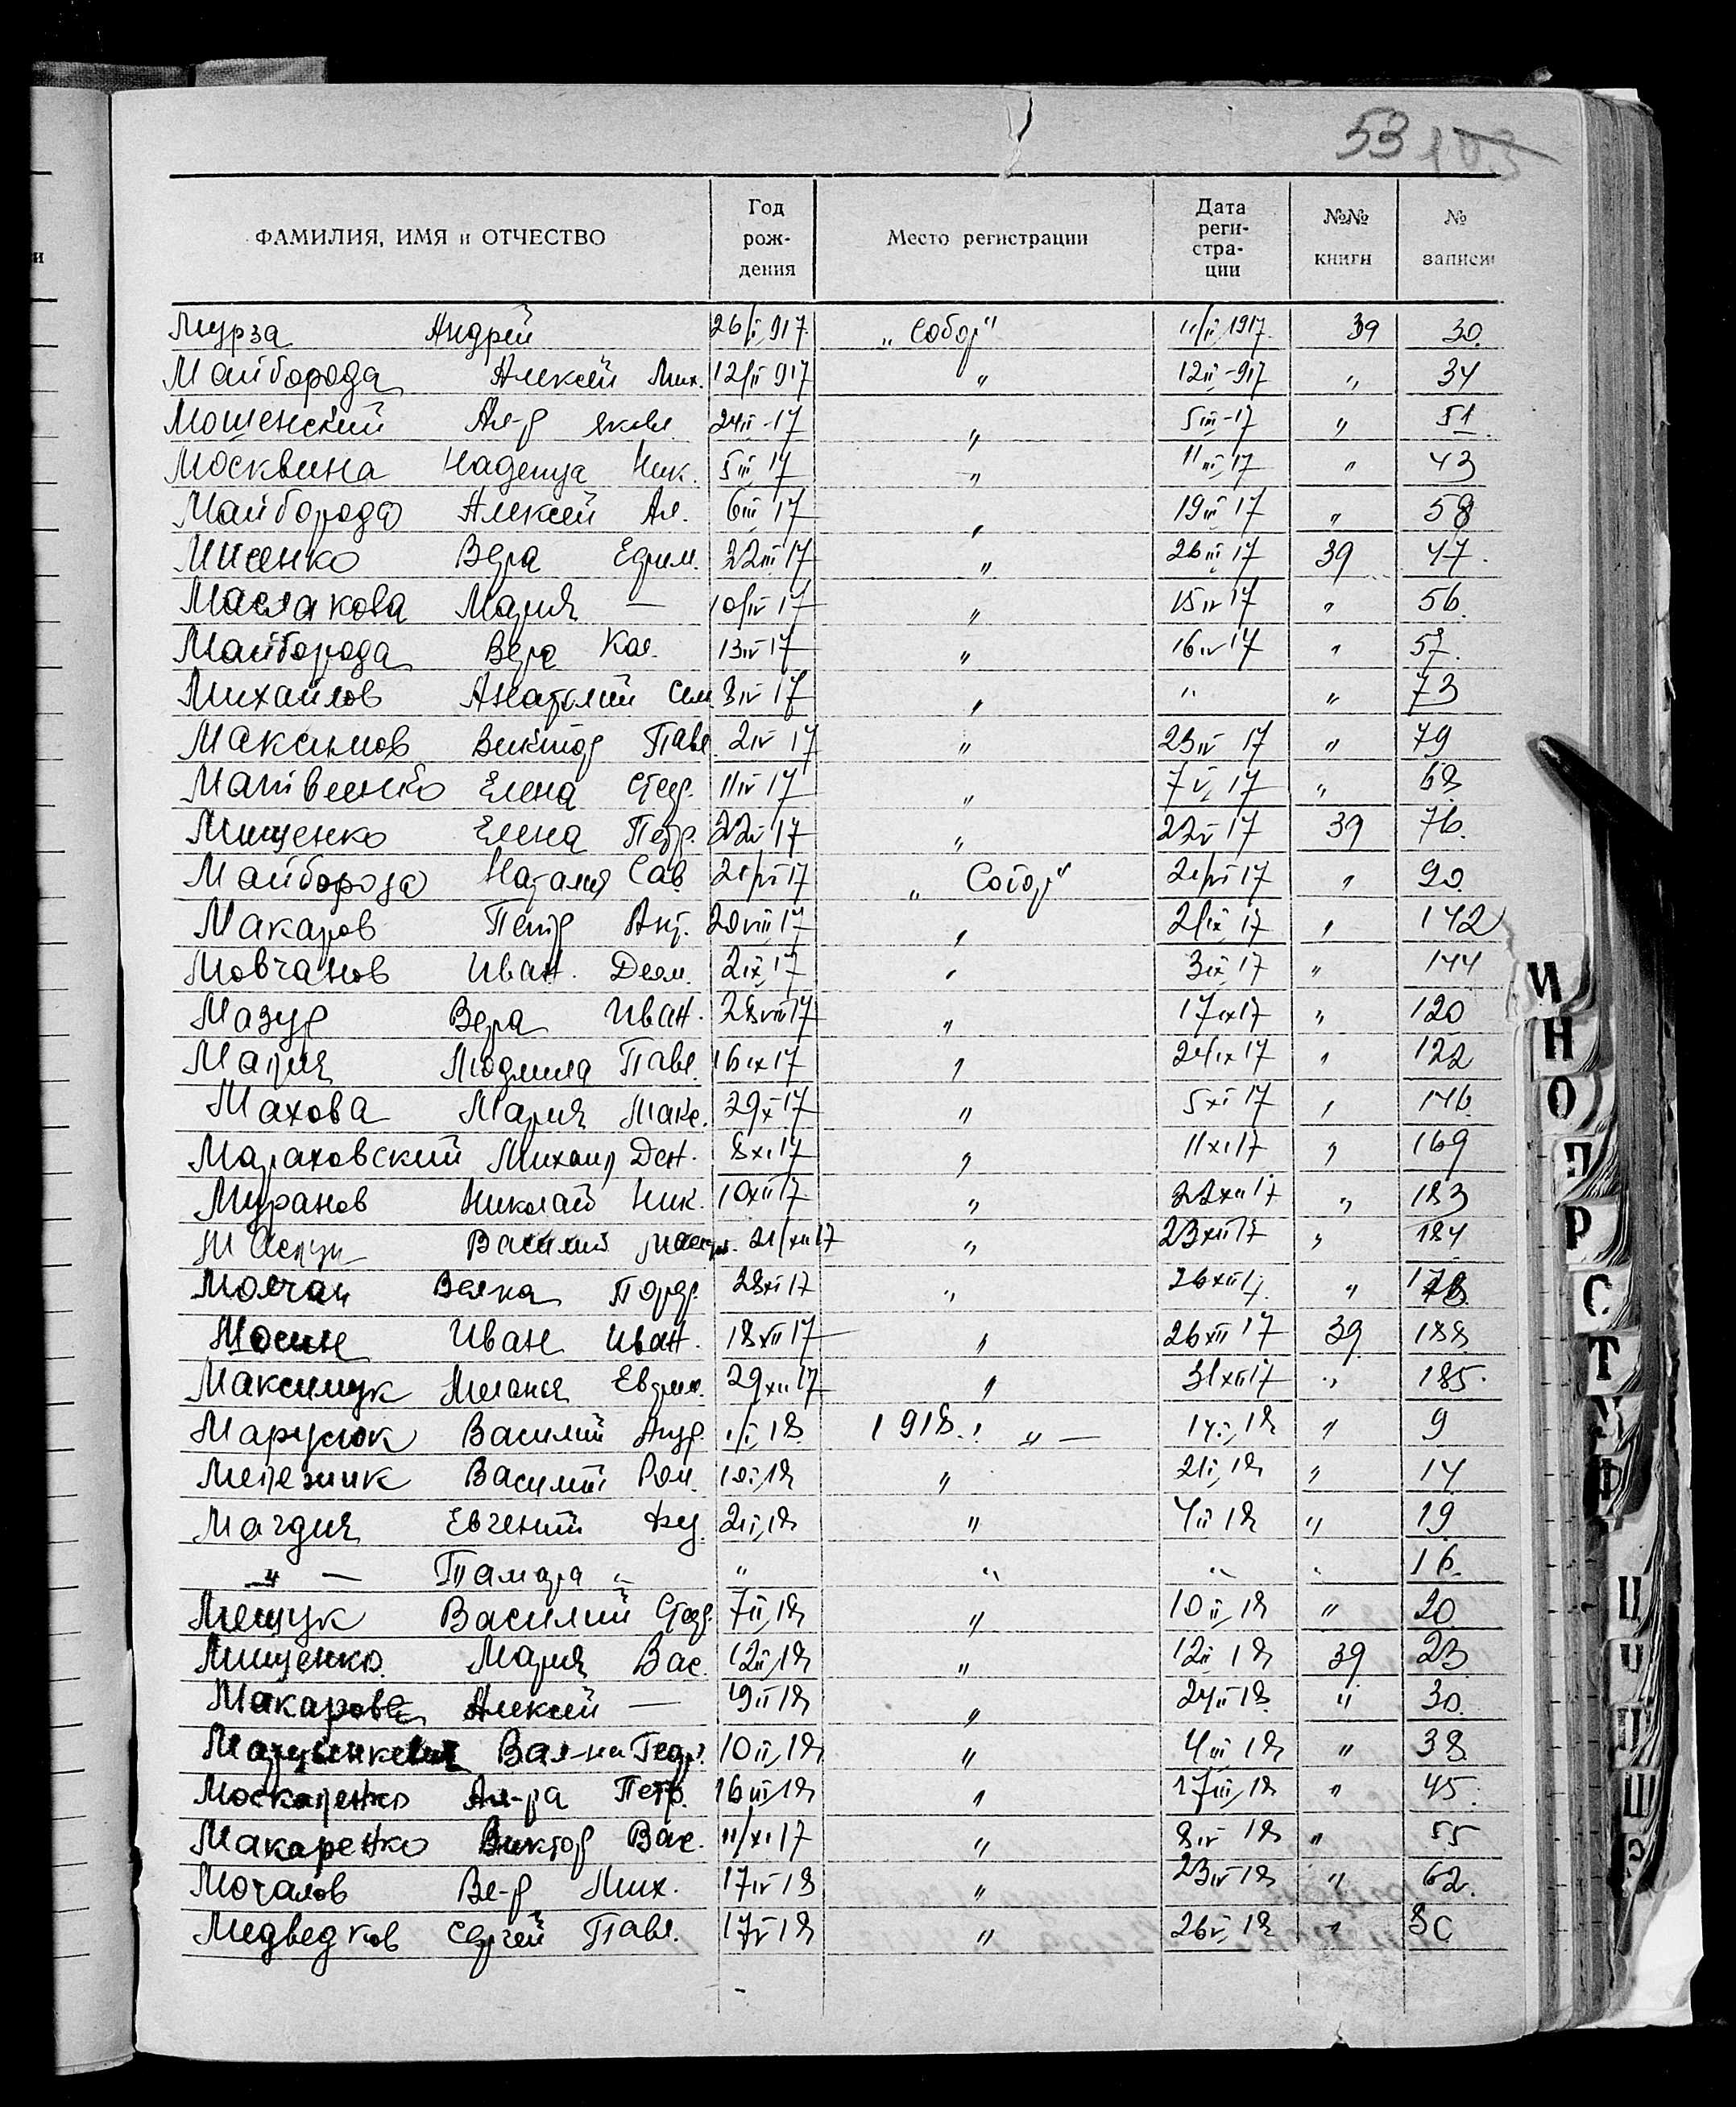 53 103
ФАМИЛИЯ, ИМЯ и ОТЧЕСТВО Год рож- дения Место регистрации Дата реги- стра- ции №№ книги № записи
Мурза Андрей 26/I,917. „Собор" 11/II,1917. 39 30.
Майборода Алексей Мих. 12/II 917 " 12II-917 " 34
Мошенский Ал-р Яковл. 24II-17 " 5III-17 " 51
Москвина Надежда Ник. 5III,17 " 11III,17 " 43
Майборода Алексей Ал. 6III 17 " 19III 17 " 58
Мисенко Вера Ефим. 22III 17 " 26III 17 39 47.
Маслакова Мария — 10/IV 17 " 15IV 17 " 56.
Майборода Вера 13IV 17 " 16IV 17 " 57.
Михайлов Анатолий Сем 8IV 17 " " " 73
Максимов Виктор Павл. 2IV 17 " 23IV 17 " 79
Матвеенко Елена Стеф. 11IV 17 " 7V,17 " 68
Мищенко Елена Петр. 22V 17 " 22V 17 39 76.
Майборода Наталия Сав. 21/VI 17 „Собор" 21/VI 17 " 90.
Макаров Петр Ант. 20VIII,17 " 2/IX,17 " 142
Мовчанов Иван. Дем. 2IX,17 " 3IX 17 " 144
Мазур Вера Иван. 28VIII 17 " 17IX 17 " 120
Людмила Павл. 16IX 17 " 24IX 17 " 122
Махова Мария Макс. 29X 17 " 5XI 17 " 146.
Мараховский Михаил Ден. 8XI 17 " 11XI 17 " 169
Муранов Николай Ник. 10XII 17 " 22XII 17 " 183
Василий 21/XII 17 " 23XII 17 " 184
Молчан 28XI 17 " 26XII 17. "
Мосин Иван Иван. 18XII 17 " 26XII 17 39 188
Максимук Мелания Евдок. 29XII 17 " 31XII 17 " 185.
Марусюк Василий Андр. 1/I,18. 1918. " — 14I,18 " 9
Василий Ром. 10I,18 " 21I,18 " 14
Евгений 2II,18 " 4II 18 " 19
" — Тамара " " " " " 16.
Мещук Василий Стеф. 7II,18 " 10II,18 " 20
Мищенко. Мария Вас. 12II,18 " 12II 18 39 23
Макарова Алексей — 19II 18 " 24II 18. " 30.
Вал-на Георг. 10II,18 " 4III 18 " 38.
Москаренко Ал-ра Петр. 16III,18 " 17III,18 " 45.
Макаренко Виктор Вас. 11/XI 17 " 8IV 18 " 55
Мочалов Вл-р Мих. 17IV 18 " 23IV 18 " 62.
Медведков Сергей Павл. 17V 18 " 26V,18 " 80
И
Н
О
П
Р
С
Т
У
Ф
Ц
Ч
Ш
Щ
Э